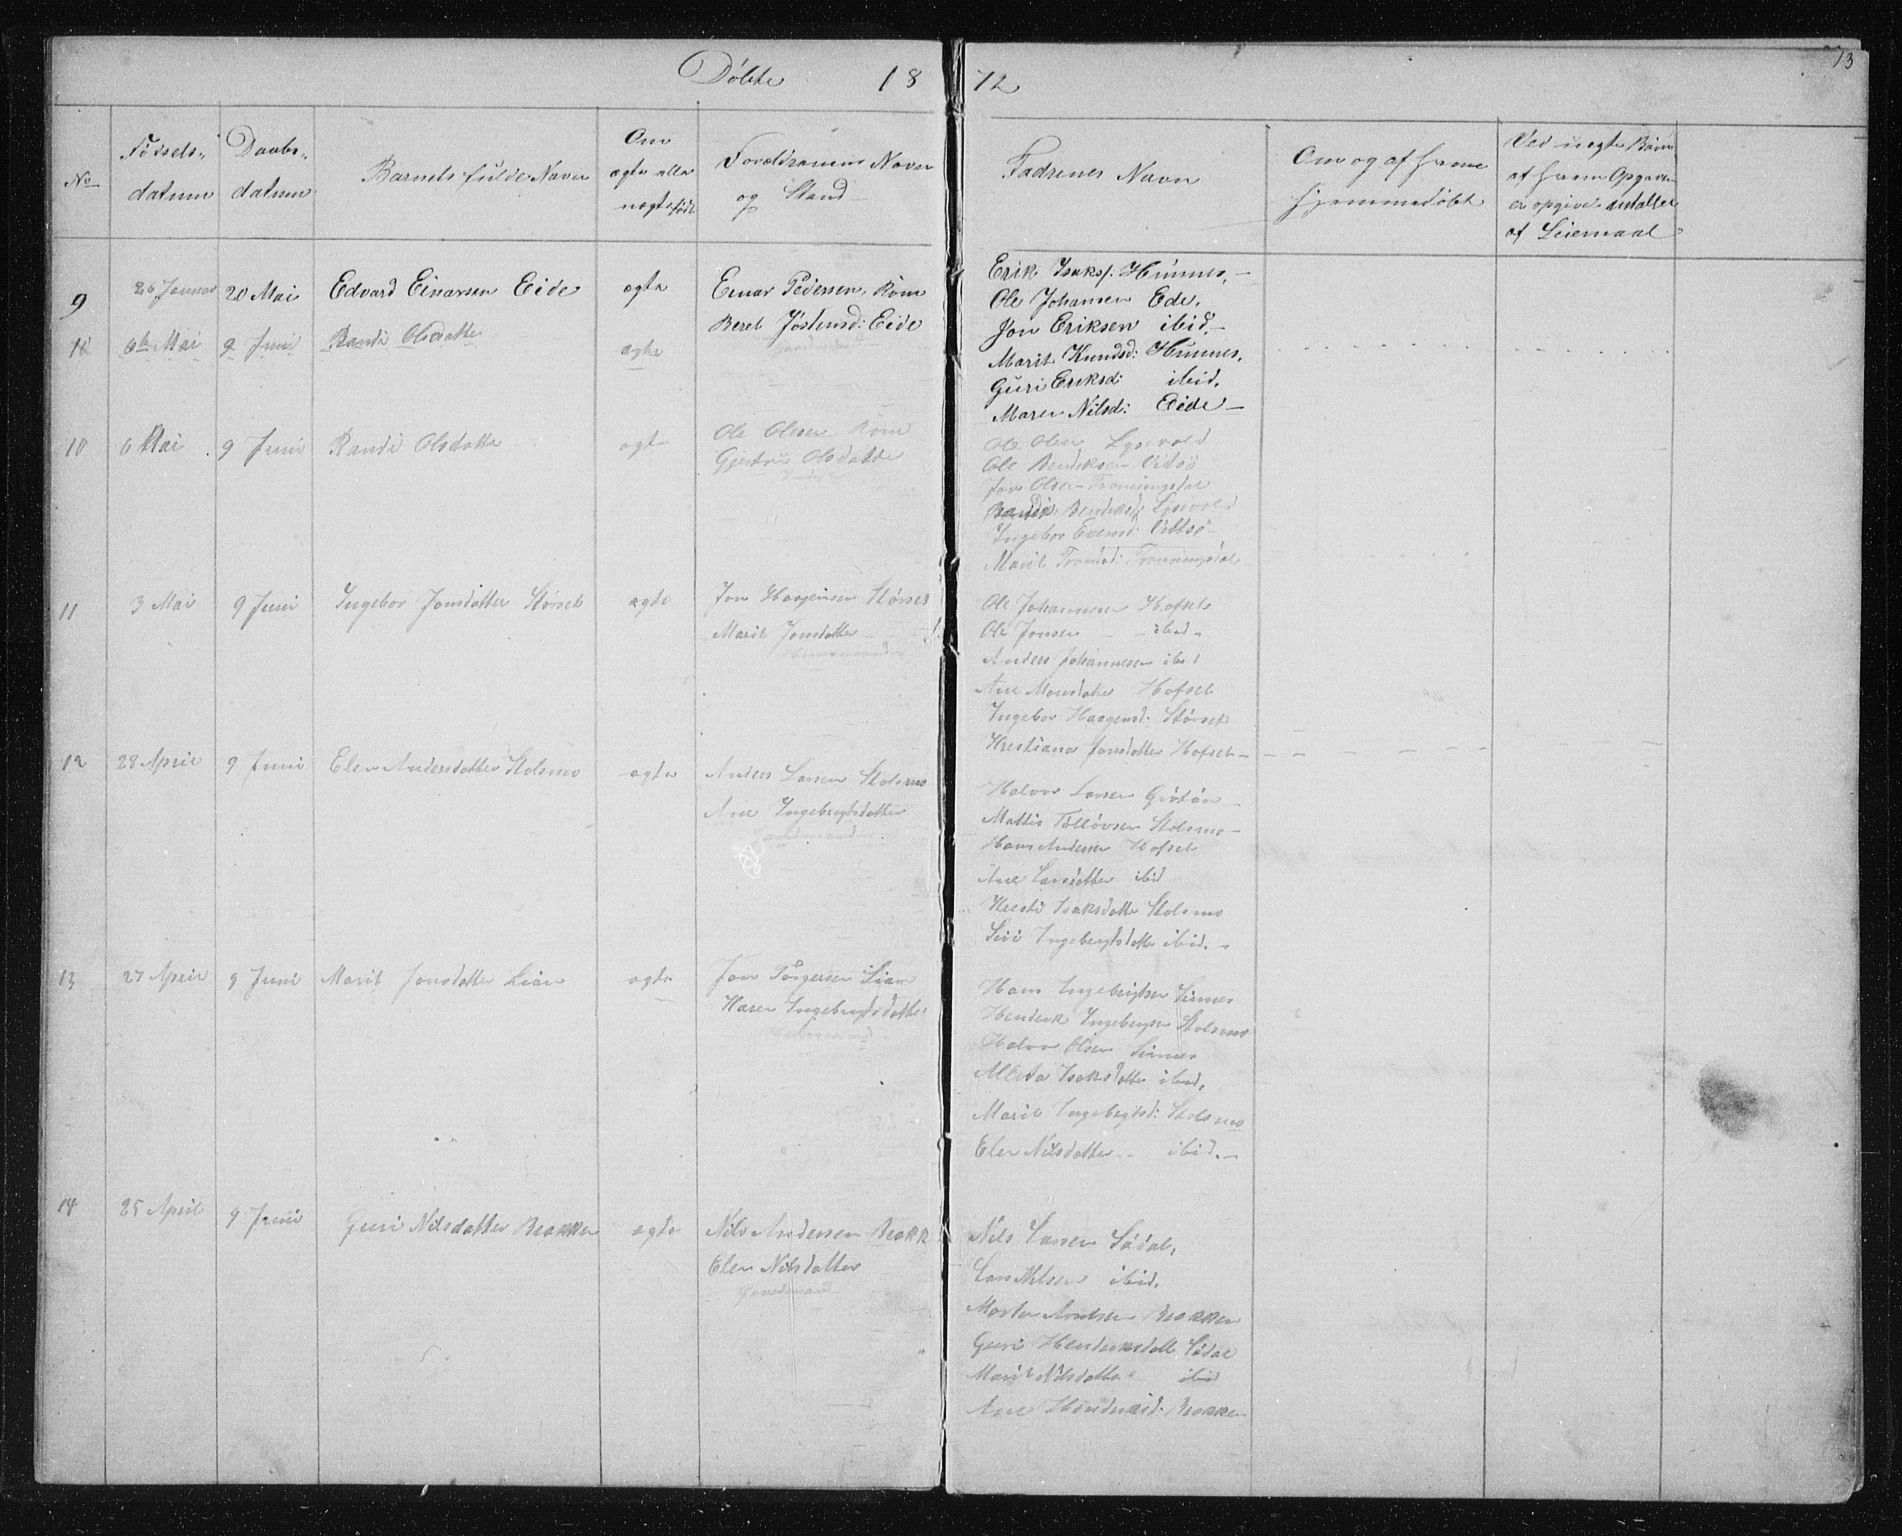 Døbte 18 72
73
No
Fødsels-
datum
Daabs-
datum
Barnets fulde Navn
Om
ægte eller
uægte født
Forældrenes Navn
og Stand
Faderenes Navn
Om og af hvem
hjemmedøbt
Ved uægte Børn
af hvem Opgaven
er opgivet antallet
af Leiermaal
9 26 Januar 20 Mai Edvard Einarsen Eide ægte
Einar Pedersen, Røm
Beret Jostensd: Eide
Erik Isaks: Hünnes,
Ole Johansen Ede,
Jon Eriksen ibid.
Marit Knudsd: Hünnes,
Guri Eriksd: ibid.
Maren Nilsd: Eide
6te Mai 9 Juni Randi Olsdatte ægte
10 6 Mai 9 Juni Randi Olsdatte ægte
Ole Olsen Røm
Gjertru Olsdatte
Ole Olsen Lysevold
Ole Bendiksen Vitsø
Jon Olsen
Bendiksd: Lysevold
Ingebor Evensd: Vitsø
Marit
11 3 Mai 9 Juni Ingebor Jonsdatter Størset ægte
Jon Haagensen Størset
Marit Jonsdatter
Ole Johannesen Hofset
Ole Jonsen ibid.
Anders Johannesen ibid
Ane Monsdatter Hofset
Ingebor Haagensd: Størset
Kristiana Jonsdatter Hofset
12 28 April 9 Juni Elen Andersdatter Stolsmo ægte
Anders Larsen Stolsmo
Ane Ingebrigtsdatter
Halvor Larsen Grøtan
Mattis Tollovsen Stolsmo
Hans Andersen Hofset
Ane Larsdatter ibid
Kersti Isaksdatte Stolsmo
Siri Ingebrigtsdatte ibid.
13 27 April 9 Juni Marit Jonsdatter Lian ægte
Jon Torgersen Lian
Karen Ingebrigtsdatter
Hans Ingebrigtsen Linnes
Henderk Ingebrigtsen Stolsmo
Halvor Olsen Linnes
Isaksdatte ibid.
Marit Ingebrigtsd: Stolsmo
Elen Nilsdatter ibid.
14 25 April 9 Juni Guri Nilsdatter Bakken ægte
Nils Andersen Bakk
Elen Nilsdatter
Gaardmand
Nils Larsen Södal,
Lars Nilsen ibid.
Morten Arntsen Bakken
Guri Henderksdatt Södal
Marit Nilsdatte ibid
Ane Henderksd: Bakken